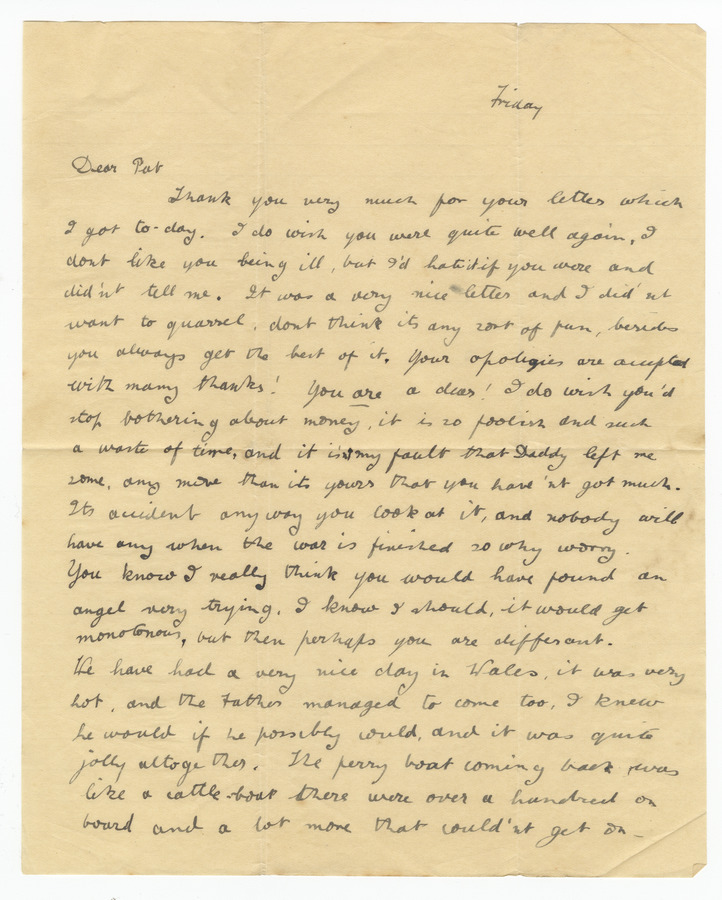 Friday
Dear Pat
Thank you very much for your letter which
I got to-day. I do wish you were quite well again, I
dont like you being ill, but I'd hate it if you were and
did'nt tell me. It was a very nice letter and I did'nt
want to quarrel, dont think its any sort of fun, besides
you always get the best of it. Your apologies are accepted
with many thanks! You are a dear! I do wish you'd
stop bothering about money, it is so foolish and such
a waste of time, and it isnt my fault that Daddy left me
some, any more than its yours that you have'nt got much.
Its accident anyway you look at it, and nobody will
have any when the war is finished so why worry.
You know I really think you would have found an
angel very trying, I know I should, it would get
monotonous, but then perhaps you are differant.
We have had a very nice day in Wales, it was very
hot, and the Father managed to come too, I knew
he would if he possibly could, and it was quite
jolly altogether. The ferry boat coming back was
like a cattle-boat there were over a hundred on
board and a lot more that could'nt get on -